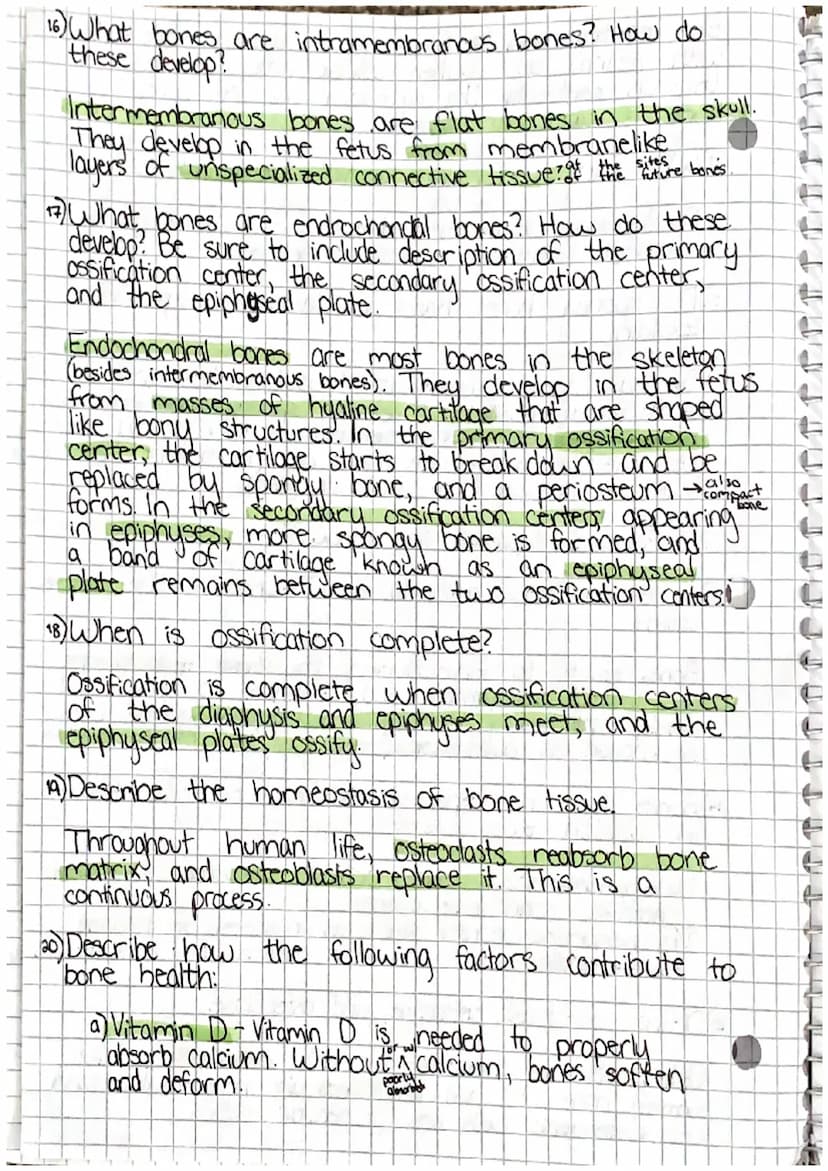 16) What bones are intramembranous bones? How do
these develop?
Intermembranous bones are flat bones in the skull.
They develop in the fetus from membranelike
layers of unspecialized connective tissue at the sites
of the future bones.
17) What bones are endrochondal bones? How do these
develop? Be sure to include description of the primary
ossification center, the secondary ossification center,
and the epiphyseal plate.
Endochondral bones are most bones in the skeleton
(besides intermembranous bones). They develop in the fetus
from masses of hyaline cartilage that are shaped
like bony structures. In the primary ossification
center, the cartilage starts to break down and be
replaced by spongy bone, and a periosteum → also
compact
bone
forms. In the secondary ossification centers, appearing
in epiphyses, more spongy bone is formed, and
a band of cartilage known as an epiphyseal
plate remains between the two ossification centers.
18) When is ossification complete?
Ossification is complete when ossification centers
of the diaphysis and epiphyses meet, and the
epiphyseal plates ossify.
19) Describe the homeostasis of bone tissue.
Throughout human life, osteoclasts reabsorb bone
matrix, and osteoblasts replace it. This is a
continuous process.
20) Describe how the following factors contribute to
bone health:
a) Vitamin D - Vitamin D is needed to properly
absorb calcium. Without or w/ poorly calcium, bones soften
and deform.